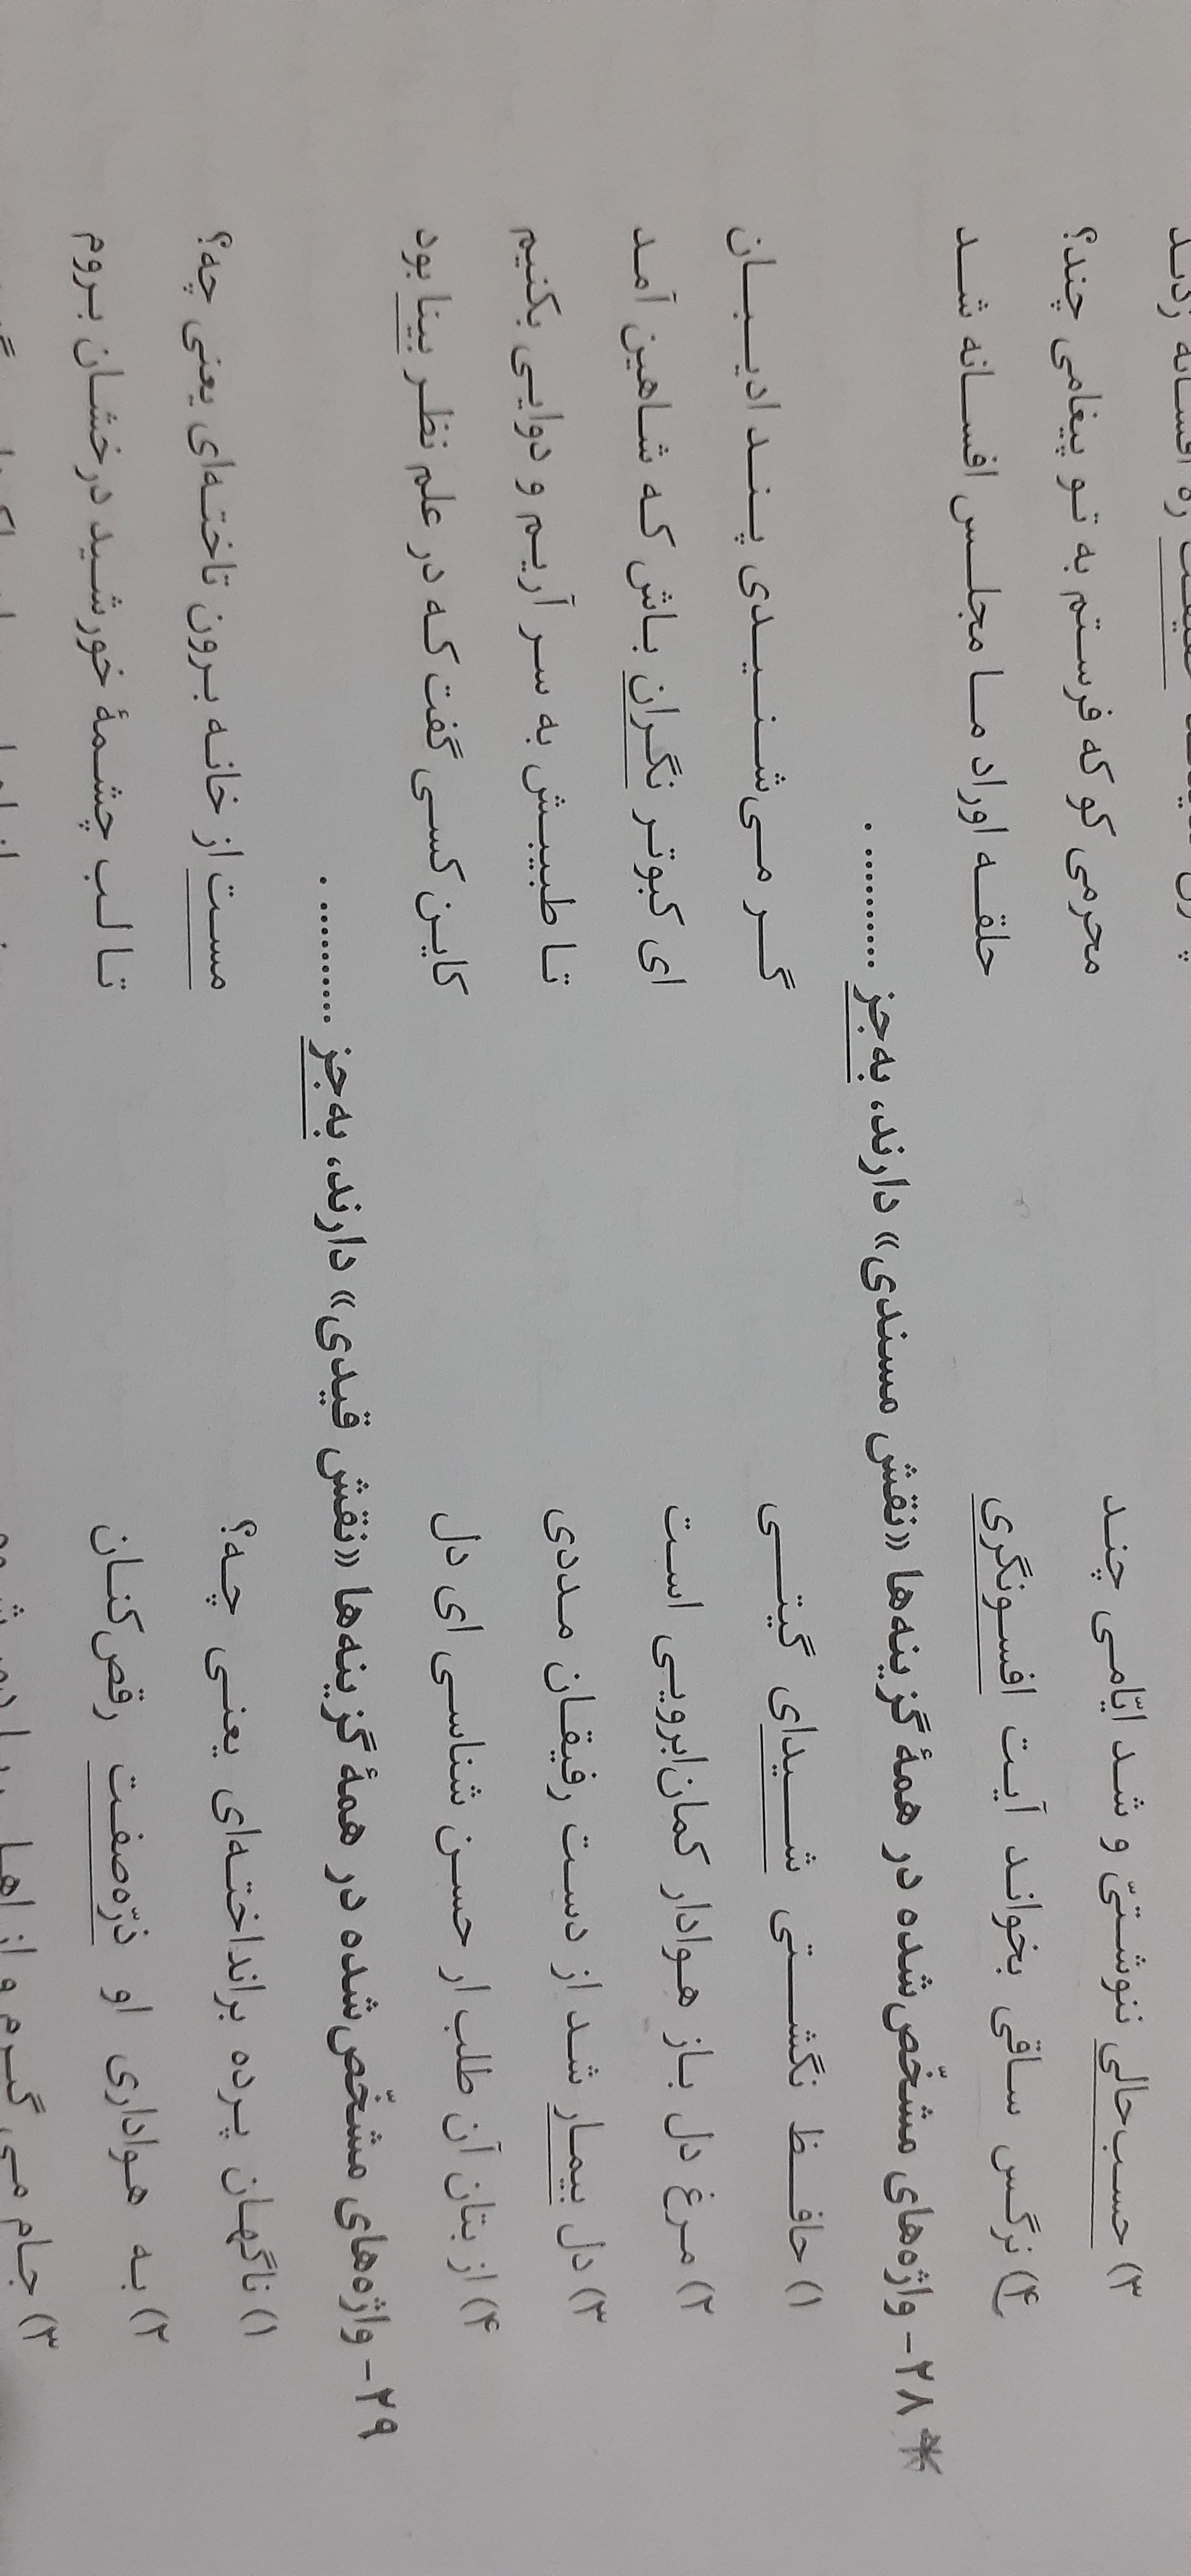 ۳) حسب‌حالی ننوشتیّ و شد ایّامی چند محرمی کو که فرستم به تو پیغامی چند؟
۴) نرگس ساقی بخواند آیت افسونگری حلقه اوراد ما مجلس افسانه شد
* ۲۸- واژه‌های مشخّص‌شده در همهٔ گزینه‌ها «نقش مسندی» دارند، به‌جز ........... .
۱) حافظ نگشتی شیدای گیتی گر می‌شنیدی پند ادیبان
۲) مرغ دل باز هوادار کمان‌ابرویی است ای کبوتر نگران باش که شاهین آمد
۳) دل بیمار شد از دست رفیقان مددی تا طبیبش به سر آریم و دوایی بکنیم
۴) از بتان آن طلب ار حسن شناسی ای دل کاین کسی گفت که در علم نظر بینا بود
۲۹- واژه‌های مشخّص‌شده در همهٔ گزینه‌ها «نقش قیدی» دارند، به‌جز ........... .
۱) ناگهان پرده برانداخته‌ای یعنی چه؟ مست از خانه برون تاخته‌ای یعنی چه؟
۲) به هواداری او ذرّه‌صفت رقص‌کنان تا لب چشمهٔ خورشید درخشان بروم
۳) جام می گیرم و از اهل